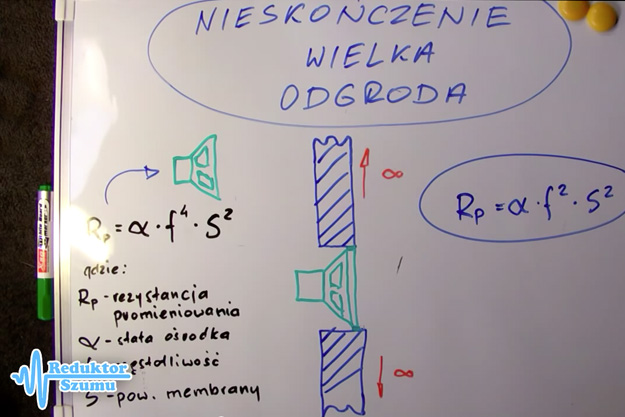 NIESKOŃCZENIE
WIELKA
ODGRODA
∞
Rp = α · f² · S²
Rp = α · f⁴ · S²
gdzie:
Rp - rezystancja
promieniowania
α - stała ośrodka
S - pow. membrany
∞
Reduktor
Szumu